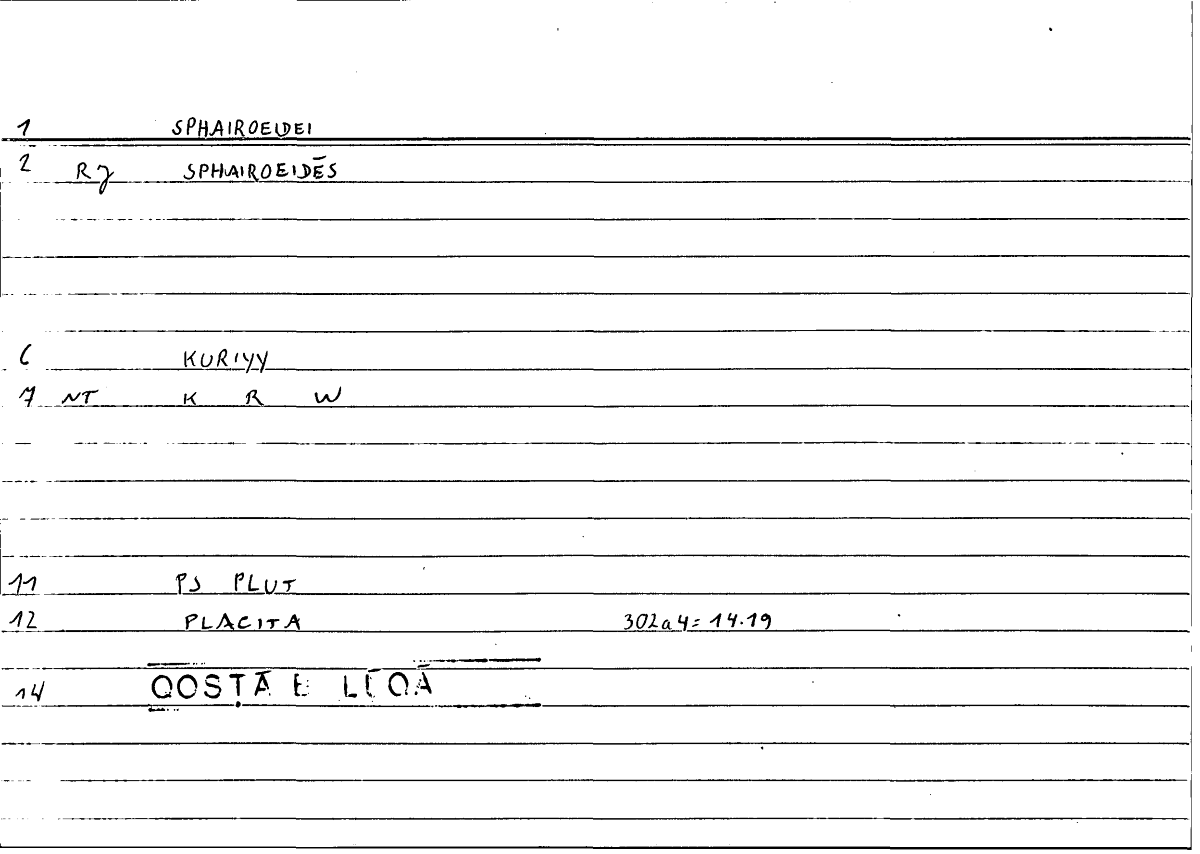 1 SPHAIROEIDEI
2 R7 SPHAIROEIDĒS
6 KURIYY
7 NT K R W
11 PS PLUT
12 PLACITA 302a4=14.19
14 QOSṬĀ B LŪQĀ